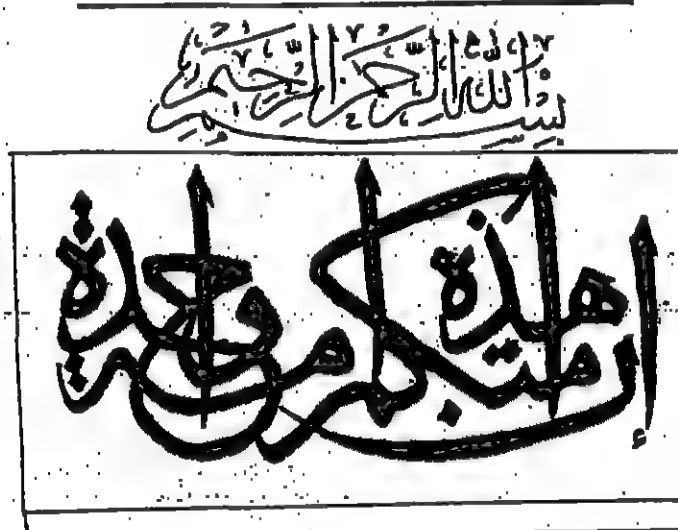 بسم الله الرحمن الرحيم
إن هذه امتكم امة واحدة